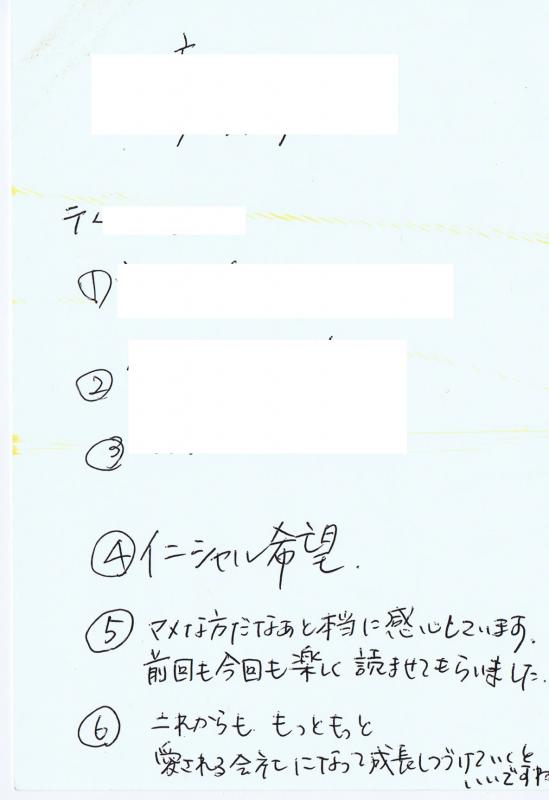 ①
②
③
④イニシャル希望.
⑤ マメな方だなぁと本当に感心しています.
前回も今回も楽しく読ませてもらいました.
⑥ これからも もっともっと
愛される会社になって成長しつづけていくと
いいですね